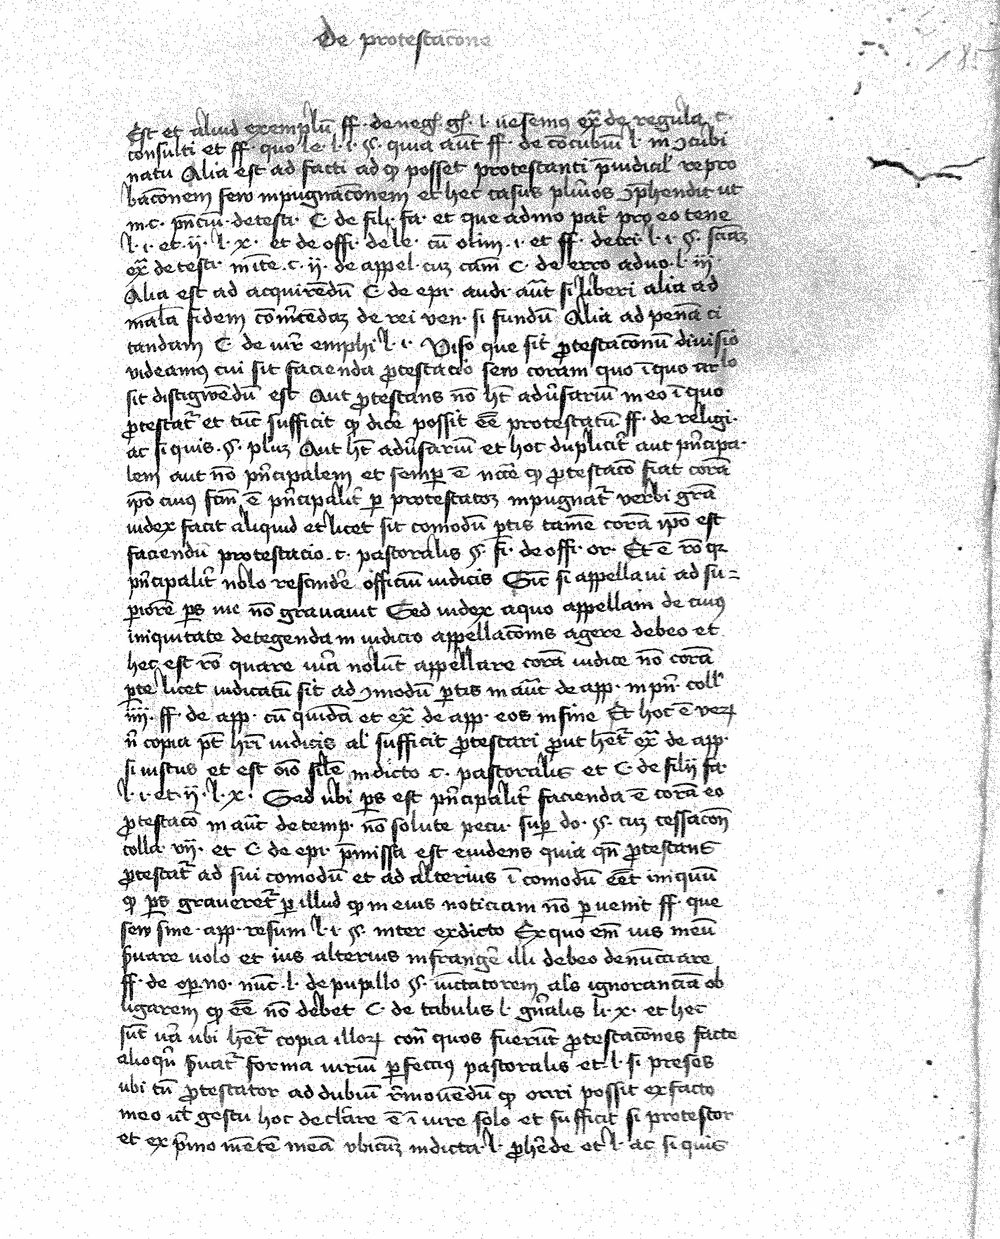 De protestacōne
Est et aliud exemplū ff. de neg. gͥ. l. ex de regula c.
consulti et ff. quo le. l. i. §. quia aūt ff. de cōcubiū l. in ɔcubi
natu Alia est ad facti ad qͩ posset protestanti p̄iudicial repro
bacōnem sew inpugnacōnem et hec casus plures ɔphendit ut
in c. de testi. C. de fili. fa. et que admo pat̄ pro eo tene
l. i. et ii. l. x. et de offi. dele. cū olim. i. et ff. de l. i. §.
ex̄ de testi. in c. ii. de appel. cuz cām C. de erro advo. l. iii
Alia est ad acquirēdū C. de epi. audi. aūt si liberi alia ad
malā fidem de rei ven. si fundū Alia ad penā ci
tandam C. de iur̄ emphi. l. i. Viso que sit p̄testacōnū divisio
videamꝯ cui sit facienda p̄testacio sew coram quo ī quo
sit distigwēdū est Aut p̄testans nō ht̄ adūsariū in eo ī quo
p̄testat̄ et tūc sufficit qͩ dice possit eē̄ protestatū ff. de religi.
ac si quis. §. pluz Aut ht̄ adūsariū et hoc duplicit̄ aut p̄ncipa
lem aut nō p̄ncipalem et semp̄ ē qͩ p̄testacō fiat corā
ip̄o cuius fcm̄ ē p̄ncipalit̄ p̄ protestatoꝫ inpugnat̄ verbi grā
iudex facit aliquid et licet sit comodū p̄tis tamē corā ip̄o est
faciendū protestacio. c. pastoralis §. fi. de offi. or. Et ē rō qꝛ
p̄ncipalit̄ nolo rescindē officiū iudicis Sic si appellavi ad su-
piorē p̄s me nō gravavit Sed iudex a quo appellavi de cuius
iniquitate detegenda in iudicio appellacōnis agere debeo et
hec est rō quare iura nolūt appellare corā iudice nō corā
p̄te licet iudicatū sit ad ɔmodū p̄tis in aūt de app. in pn. coll
iiii. ff. de app. cū quidā et ex̄ de app. eos in fine Et hoc ē veꝝ
n̄ copia pt̄ hr̄i iudicis al sufficit p̄testari p̄ut hēt̄ ex̄ de app.
si iustus et est oīo silē in dicto c. pastoralis et C. de filii fa.
l. i. et ii. l. x. Sed ubi p̄s est p̄ncipalit̄ facienda ē corā eo
p̄testacō in aūt de temp. nō solute pecu. sup̄ do. §. cuz cessacōn
colla. vii. et C. de epi. p̄missa est evidens quia qn̄ p̄testans
p̄testat̄ ad sui comodū et ad alterius ī comodū eēt iniquū
qͩ p̄s graveret̄ p̄ illud qͩ in eius noticiam nō p̄venit ff. que
sew sine. app. resum l. i. §. inter ex dicto Ex quo em̄ ius meū
p̄vare volo et ius alterius infrangē illi debeo denūciare
ff. de op̄. no. nūc. l. de pupillo §. als ignoranciā ob
ligarem qͩ eē̄ nō debet C. de tabulis l. gn̄alis li. x. et hec
sūt vā ubi hēt̄ copia illoꝝ quos fuerūt p̄testacōnes facte
alioqn̄ forma iuriū p̄ pastoralis et l. si preses
ubi tn̄ p̄testator ad dubiū r̄movēdū qͩ oriri possit ex facto
meo ut gestu hoc declāre ē ī iure solo et sufficit si protestor
et ex p̄mo mētē meā ubicūꝫ in dicta l. p̄hēde et l. ac si quis